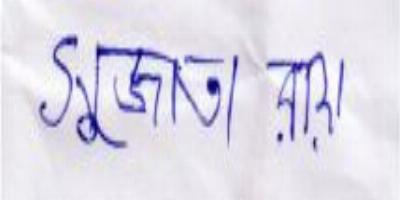 সুজাতা রায়